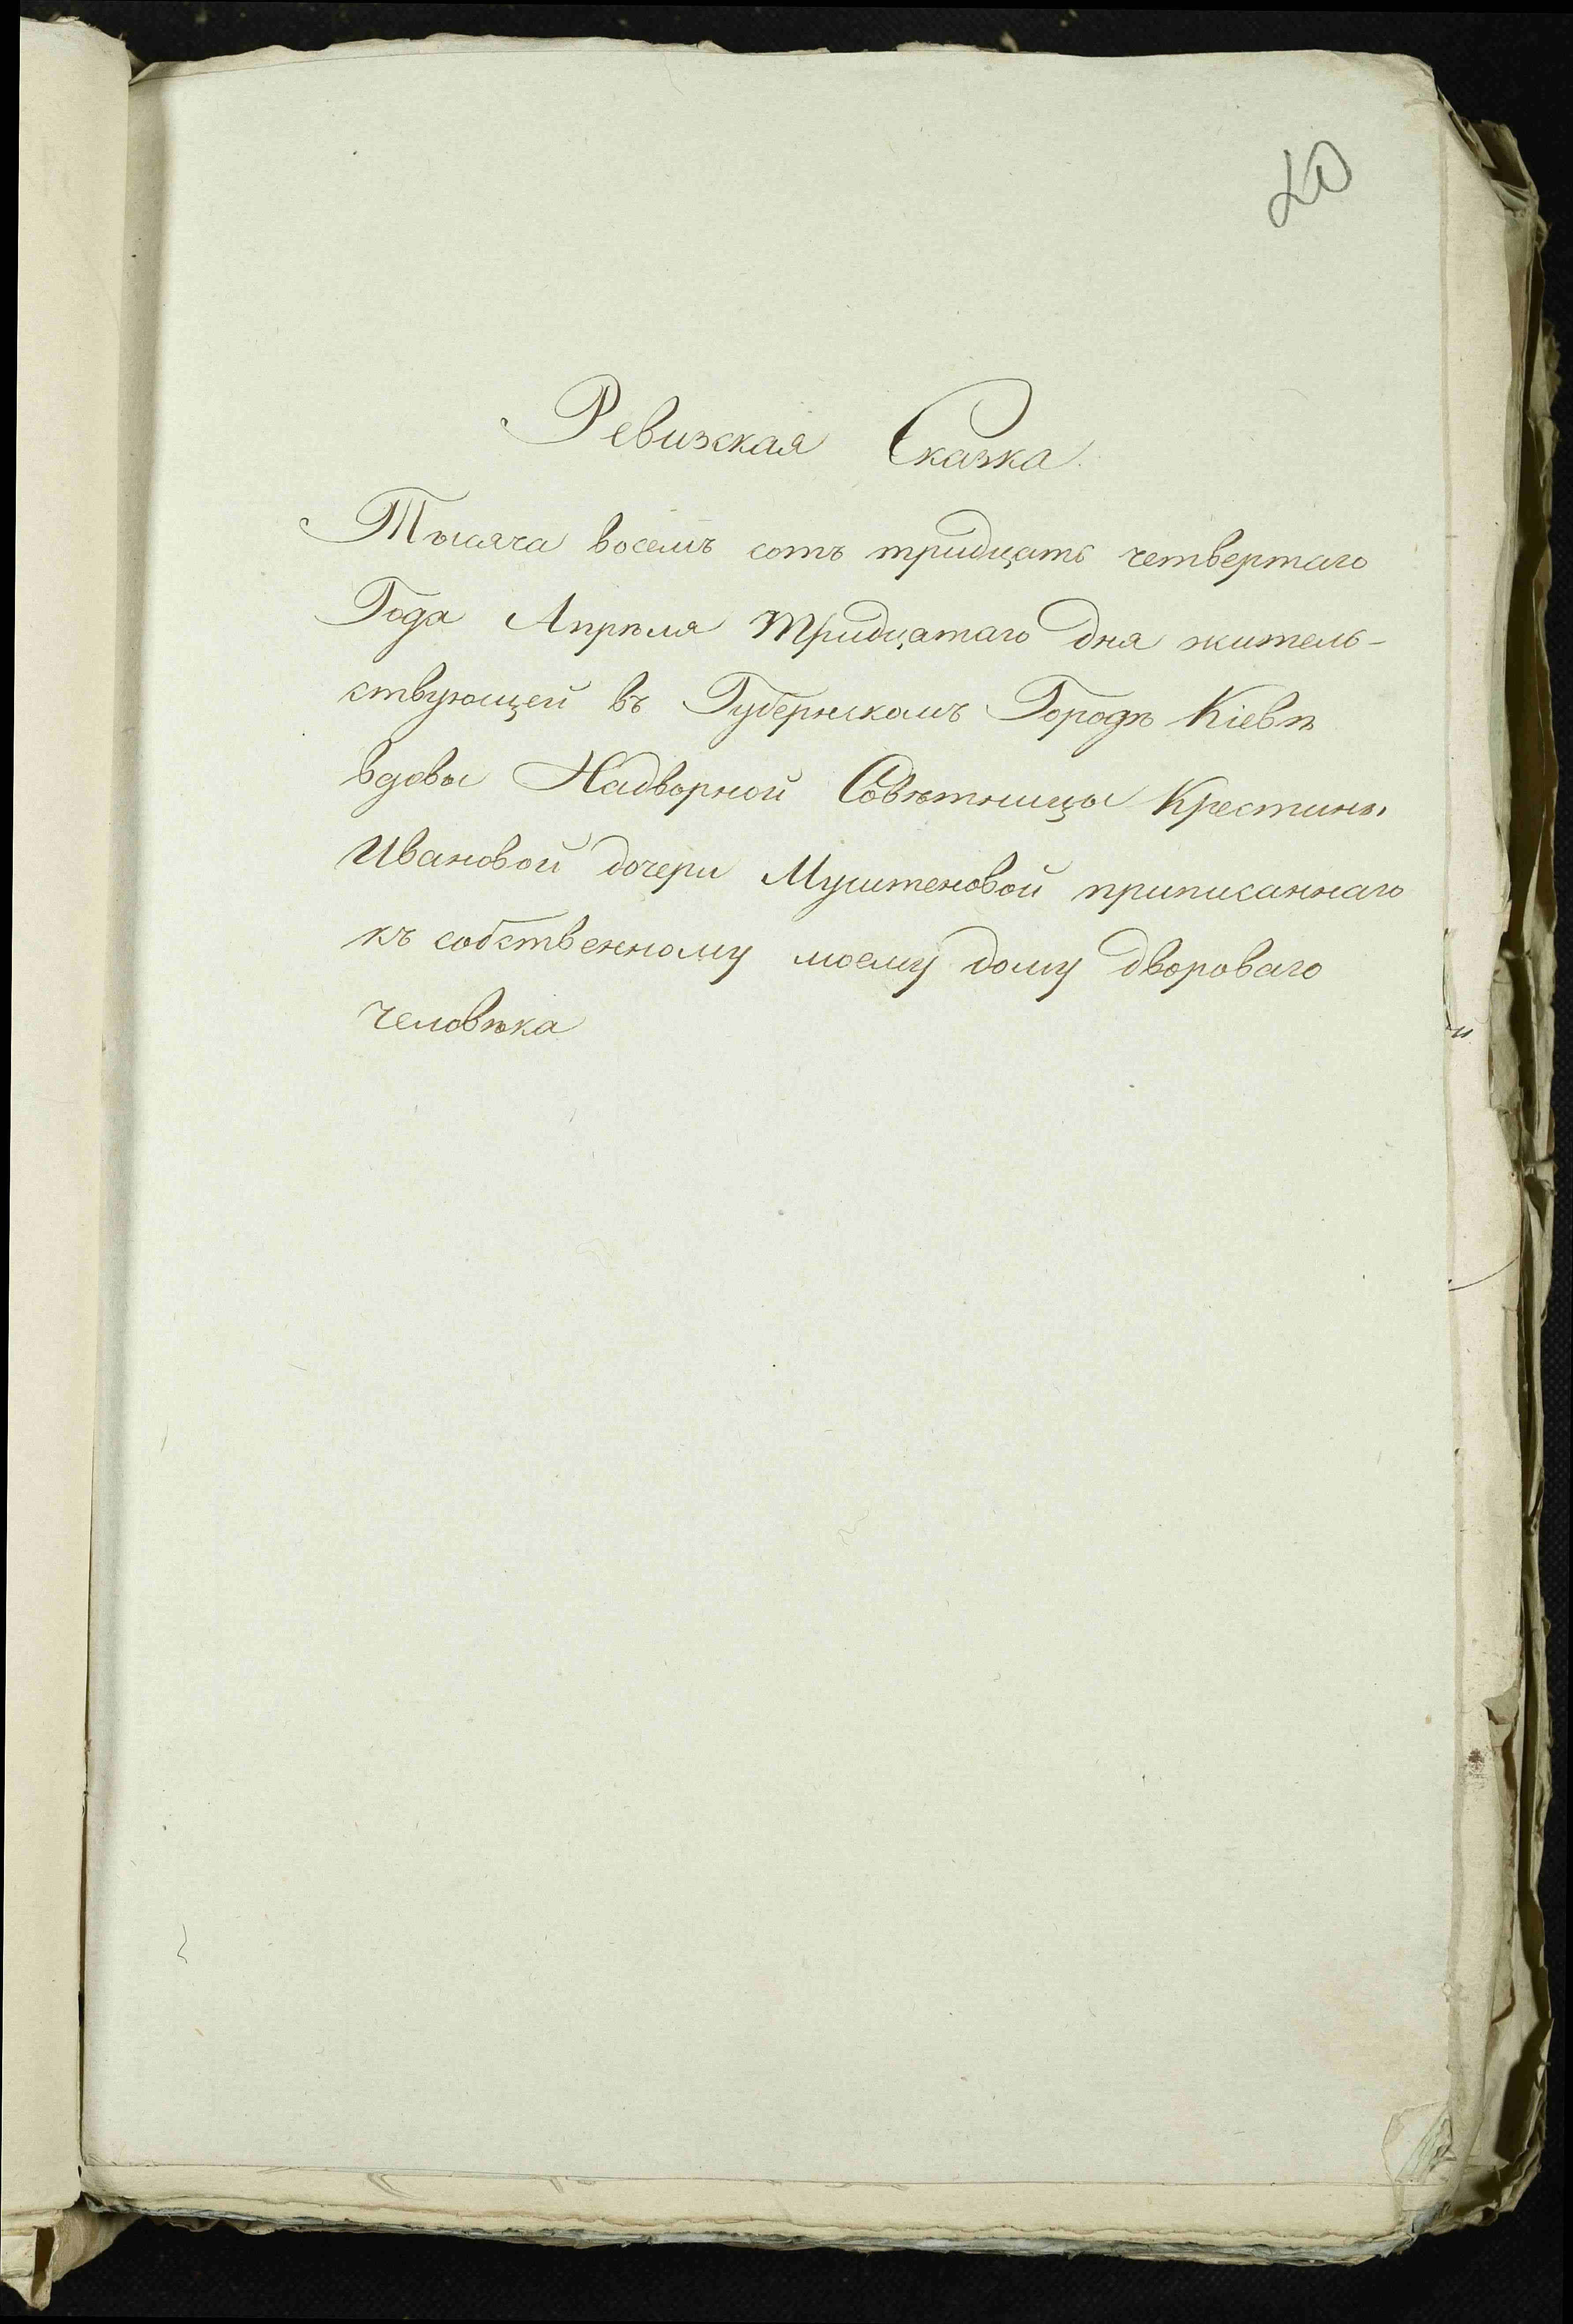 20
Ревизская Сказка.
Тысяча восемъ сотъ тридцать четвертаго
Года Апрѣля тридцатаго дня житель-
ствующей въ Губернскомъ Городѣ Кіевѣ
вдовы Надворной Совѣтницы Крестины
Ивановой дочери Муштеновой приписаннаго
къ собственному моему дому двороваго
человѣка